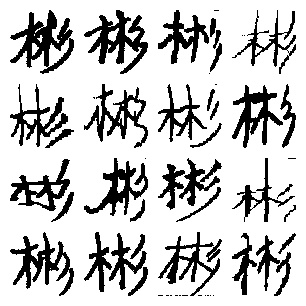 彬彬彬彬
彬彬彬彬
彬彬彬彬
彬彬彬彬